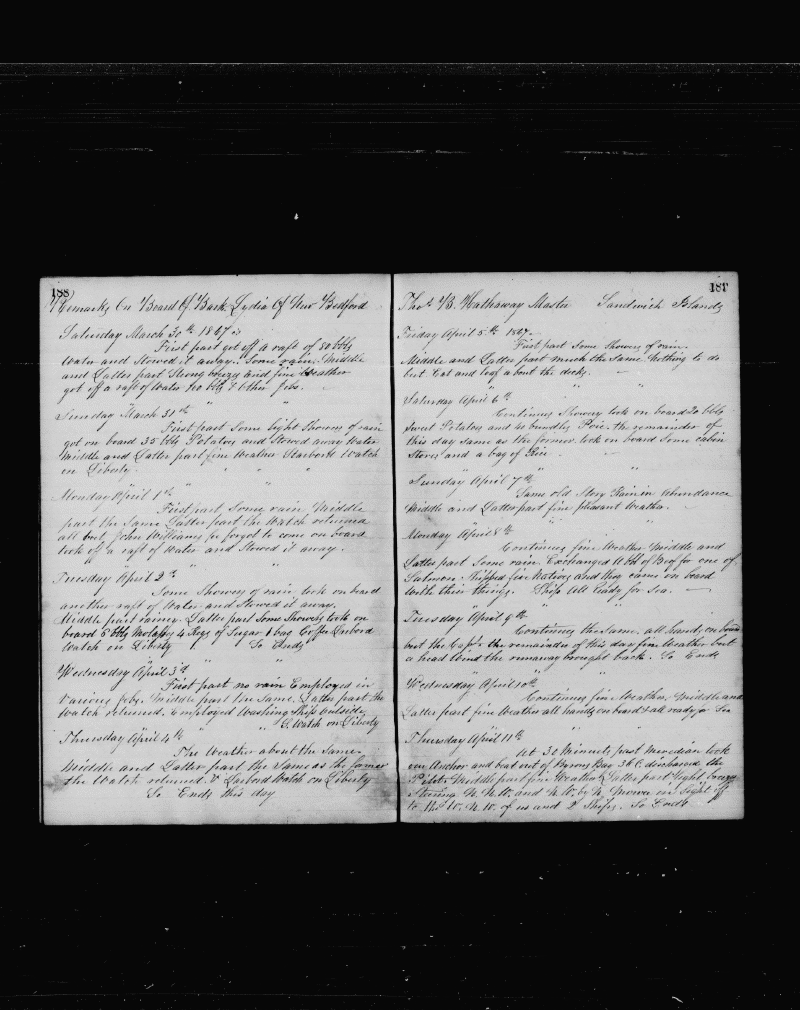 188
Remarks On Board Of Bark Lydia Of New Bedford
Saturday March 30th 1867
First part got off a raft of 80 bbls
Water and Stowed it away. Some rain. Middle
and Latter part Strong breeze and fine Weather
got off a raft of Water 100 bbls & Other Jobs.
Sunday March 31st
First part Some light Showers of rain
got on board 35 bbls Potatoes and Stowed away Water
Middle and Latter part fine Weather Starbord Watch
on Liberty.
Monday April 1st
First part Some rain Middle
part the Same Latter part the Watch returned
all but John Williams he forgot to come on board
took off a raft of Water and Stowed it away.
Tuesday April 2d
Some Showery of rain, took on board
another raft of Water and Stowed it away.
Middle part rainey. Latter part Some Showers took on
board 5 bbls Molasses 4 Kegs of Sugar 1 bag Coffee Larbord
Watch on Liberty So Ends
Wednesday April 3d
First part no rain Employed in
Various Jobs. Middle part the Same. Latter part the
Watch returned. Employed Washing Ship outside
S. Watch on Liberty
Thursday April 4th
The Weather about the Same.
Middle and Latter part the Same as the former
the Watch returned & Larbord Watch on Liberty
So Ends this day
181
Thos B. Hathaway Master Sandwich Islands
Friday April 5th 1867
First part Some Showers of rain.
Middle and Latter part much the Same Nothing to do
but Eat and loaf about the decks.
Saturday April 6th
Continues Showery took on board 20 bbls
Sweet Potatoes and bundles Poie. the remainder of
this day Same as the former. took on board Some cabin
Stores and a bag of Rice
Sunday April 7th
Same old Story Rain in Abundance
Middle and Latter part fine pleasant Weather.
Monday April 8th
Continues fine Weather Middle and
Latter part Some rain. Exchanged 1 bbl of Beef for one of
Salmon Shipped five Natives and they came on board
with their things. Ship All Ready for Sea.
Tuesday April 9th
Continues the Same. all hands on board
but the Capt the remainder of this day fine Weather but
a head wind the runaway brought back. So Ends
Wednesday April 10th
Continues fine Weather. Middle and
Latter part fine Weather all hands on board & all ready for Sea
Thursday April 11th
At 30 Minutes past Meredian took
our Anchor and beat out of Byrons Bay 3 O.C. discharged the
Pilot. Middle part fine Weather Latter part light breeze
Steering N.N.W. and N.W. by N. in Sight off
to the W.N.W. of us and 2 Ships. So Ends